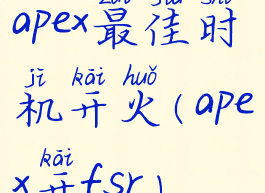 apex最佳时
jī kāi huǒ
机开火(ape
kāi
x开fsr)